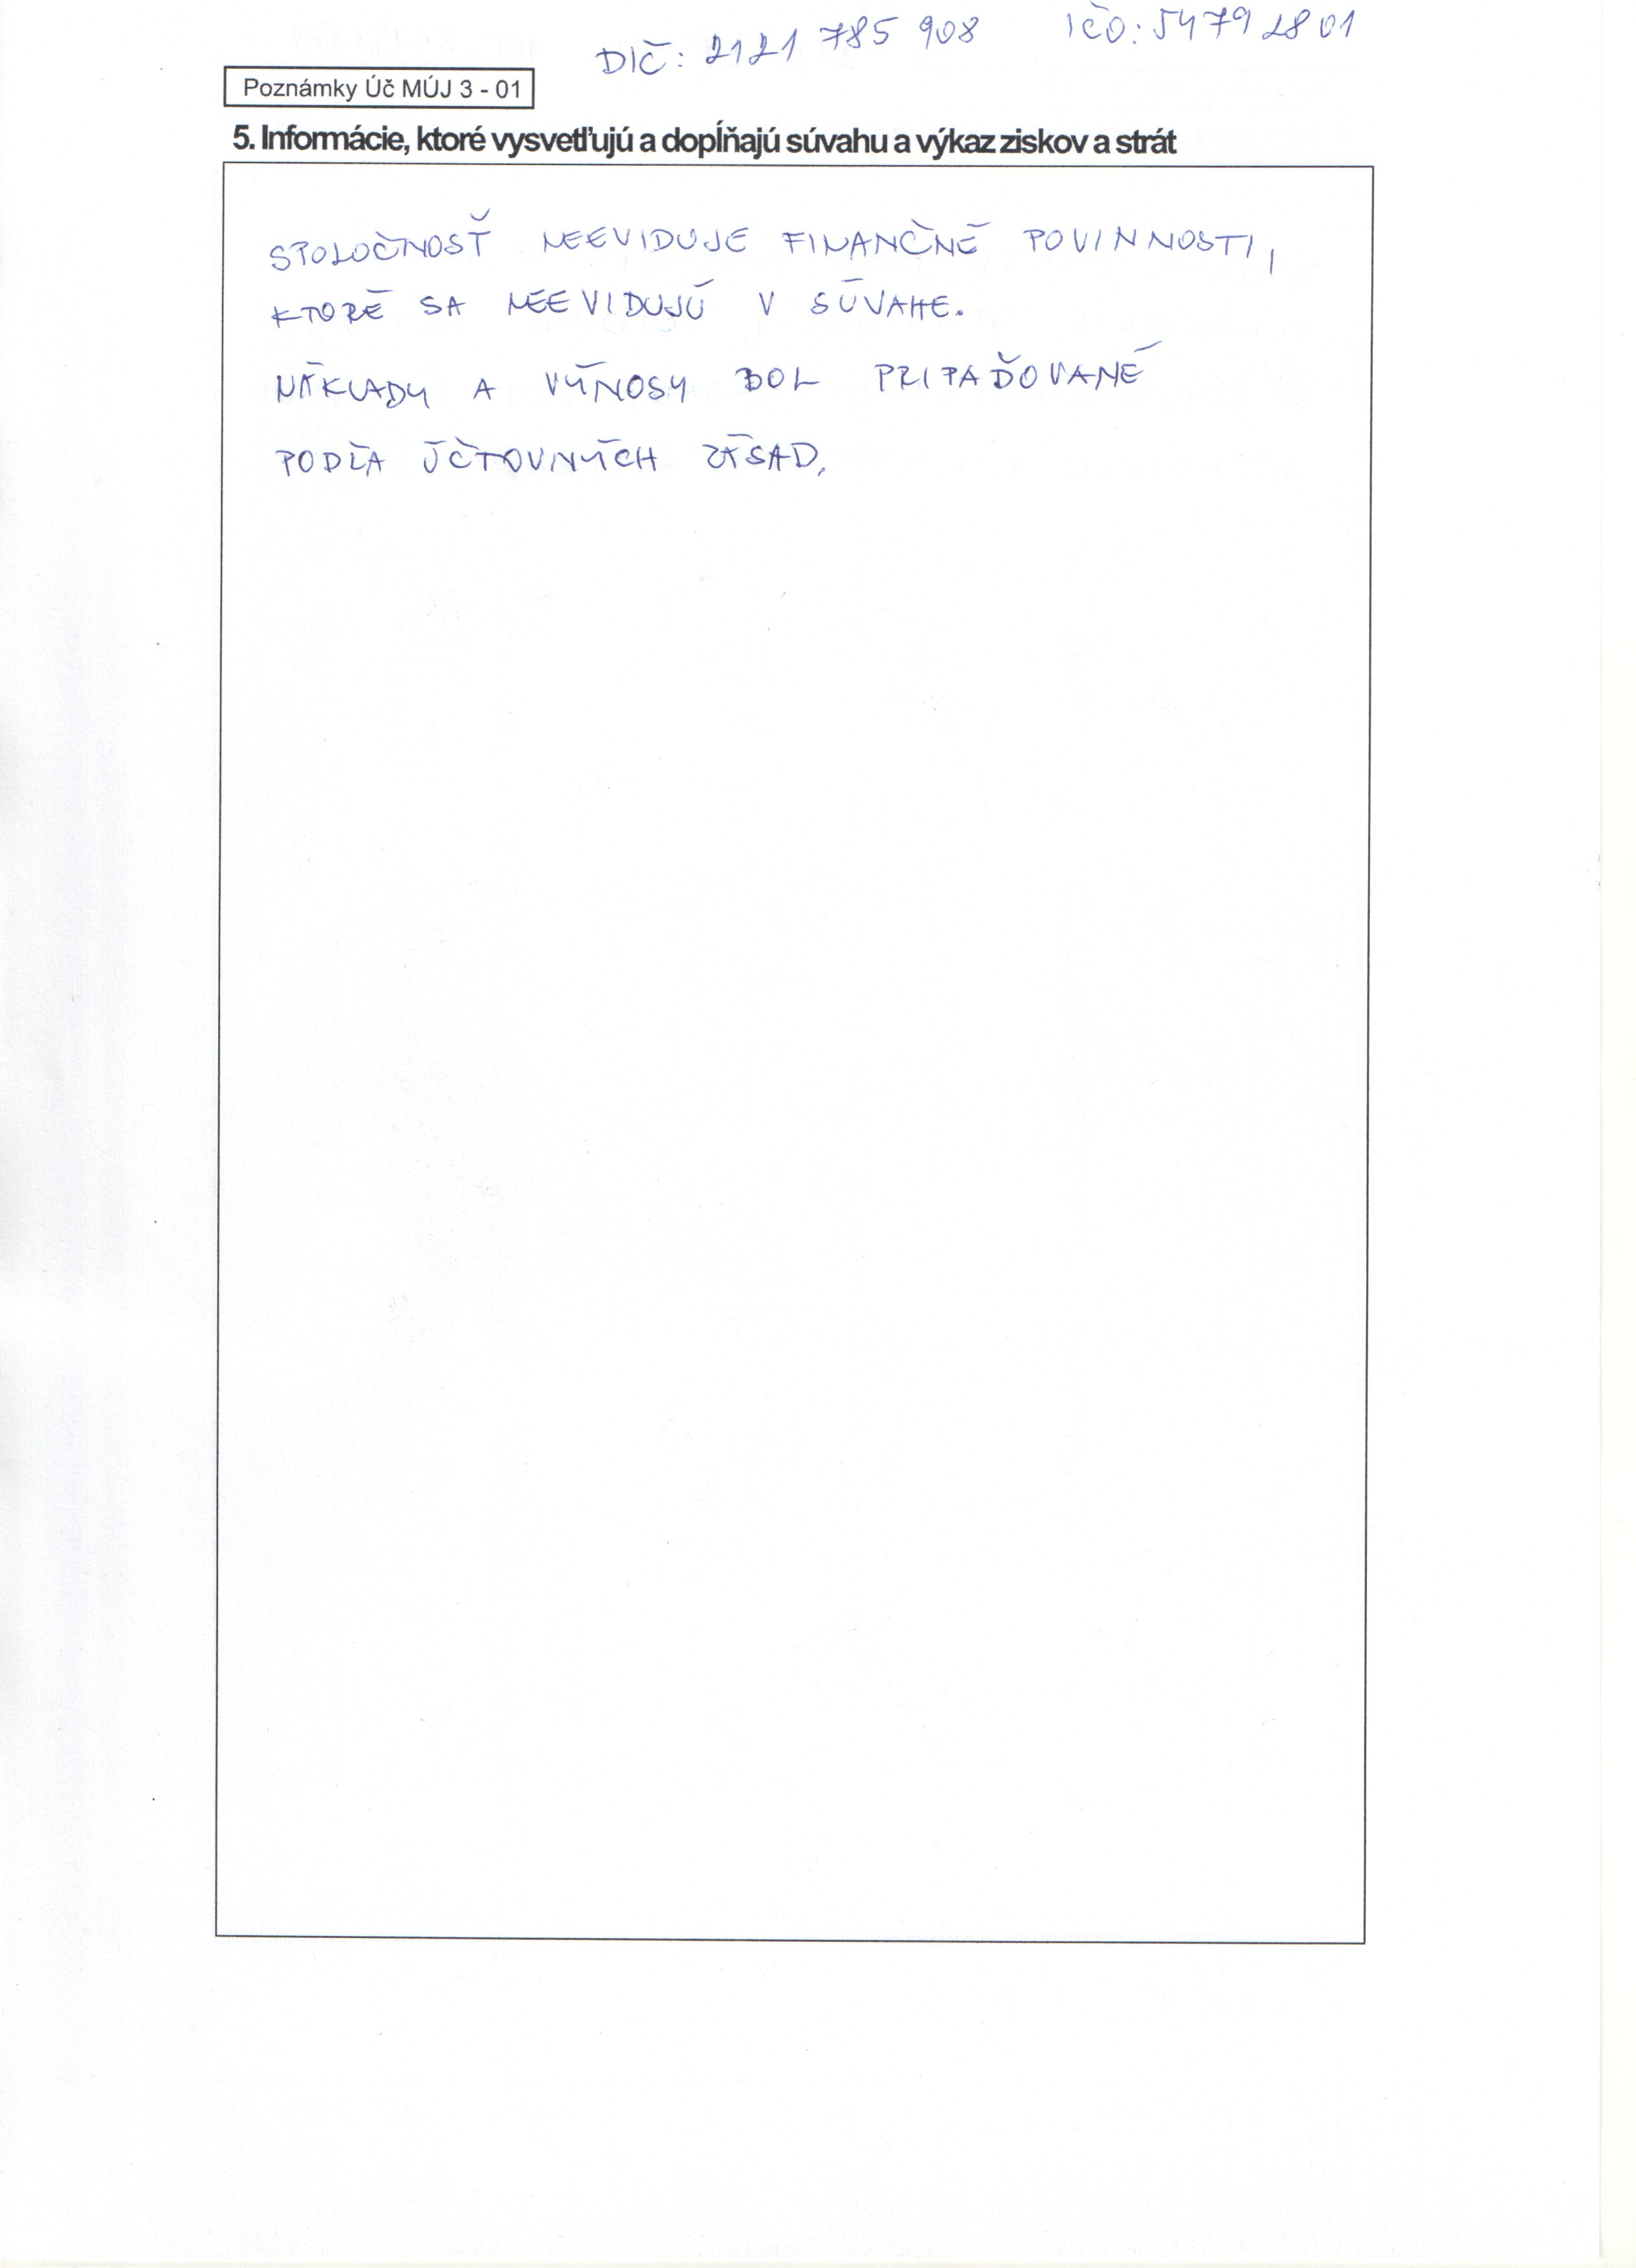 DIČ: 2121 785 908 IČO: 54792801
Poznámky Úč MÚJ 3 - 01
5. Informácie, ktoré vysvetľujú a dopĺňajú súvahu a výkaz ziskov a strát
SPOLOČNOSŤ NEEVIDUJE FINANČNÉ POVINNOSTI,
KTORÉ SA NEEVIDUJÚ V SÚVAHE.
NÁKLADY A VÝNOSY BOL PRIPAĎOVANÉ
PODĽA ÚČTOVNÝCH ZÁSAD.